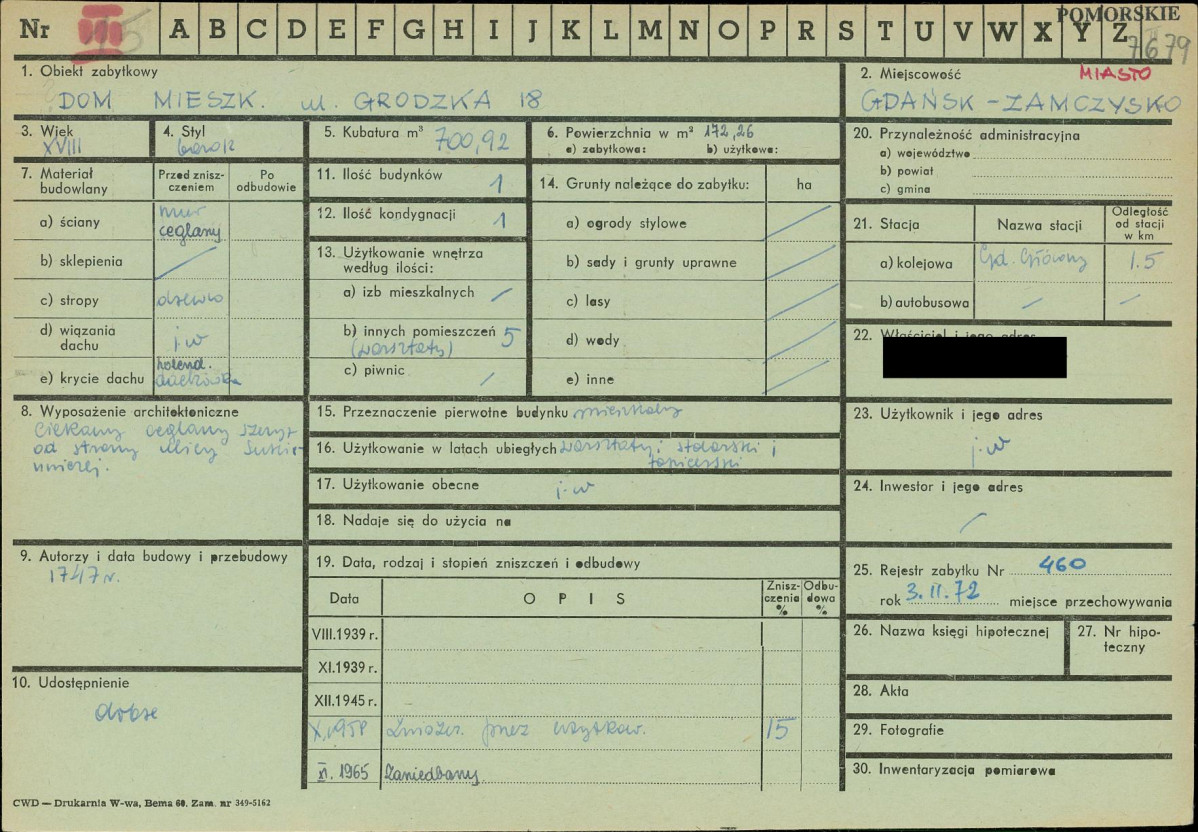 Nr III 15 A B C D E F G H I J K L M N O P R S T U V W X Y Z
POMORSKIE
7679
1. Obiekt zabytkowy
DOM MIESZK. ul. GRODZKA 18
2. Miejscowość MIASTO
GDAŃSK - ZAMCZYSKO
3. Wiek
XVIII
4. Styl
barok
5. Kubatura m³
700,92
6. Powierzchnia w m² 172,26
a) zabytkowa: b) użytkowa:
7. Materiał budowlany
Przed zniszczeniem
Po odbudowie
a) ściany mur ceglany
b) sklepienia /
c) stropy drzewo
d) wiązania dachu j.w
e) krycie dachu holend. dachówka
8. Wyposażenie architektoniczne
Ciekawy ceglany szczyt
od strony ulicy Sukien
niczej.
9. Autorzy i data budowy i przebudowy
1747 r.
10. Udostępnienie
dobre
11. Ilość budynków 1
12. Ilość kondygnacji 1
13. Użytkowanie wnętrza według ilości:
a) izb mieszkalnych /
b) innych pomieszczeń 5
(warsztaty)
c) piwnic /
14. Grunty należące do zabytku: ha
a) ogrody stylowe /
b) sady i grunty uprawne /
c) lasy /
d) wody /
e) inne /
15. Przeznaczenie pierwotne budynku mieszkalny
16. Użytkowanie w latach ubiegłych warsztaty: stolarski i
tapicerski
17. Użytkowanie obecne j.w
18. Nadaje się do użycia na
19. Data, rodzaj i stopień zniszczeń i odbudowy
Data OPIS Zniszczenia % Odbudowa %
VIII.1939 r.
XI.1939 r.
XII.1945 r.
X.1958 Zniszcz. przez użytkow. 15
XI. 1965 Zaniedbany
20. Przynależność administracyjna
a) województwo
b) powiat
c) gmina
21. Stacja Nazwa stacji Odległość od stacji w km
a) kolejowa Gd. Główny 1.5
b) autobusowa / /
22. Właściciel i jego adres
23. Użytkownik i jego adres
j.w
24. Inwestor i jego adres
/
25. Rejestr zabytku Nr 460
rok 3.II.72 miejsce przechowywania
26. Nazwa księgi hipotecznej
27. Nr hipoteczny
28. Akta
29. Fotografie
30. Inwentaryzacja pomiarowa
CWD — Drukarnia W-wa, Bema 60. Zam. nr 349-5162